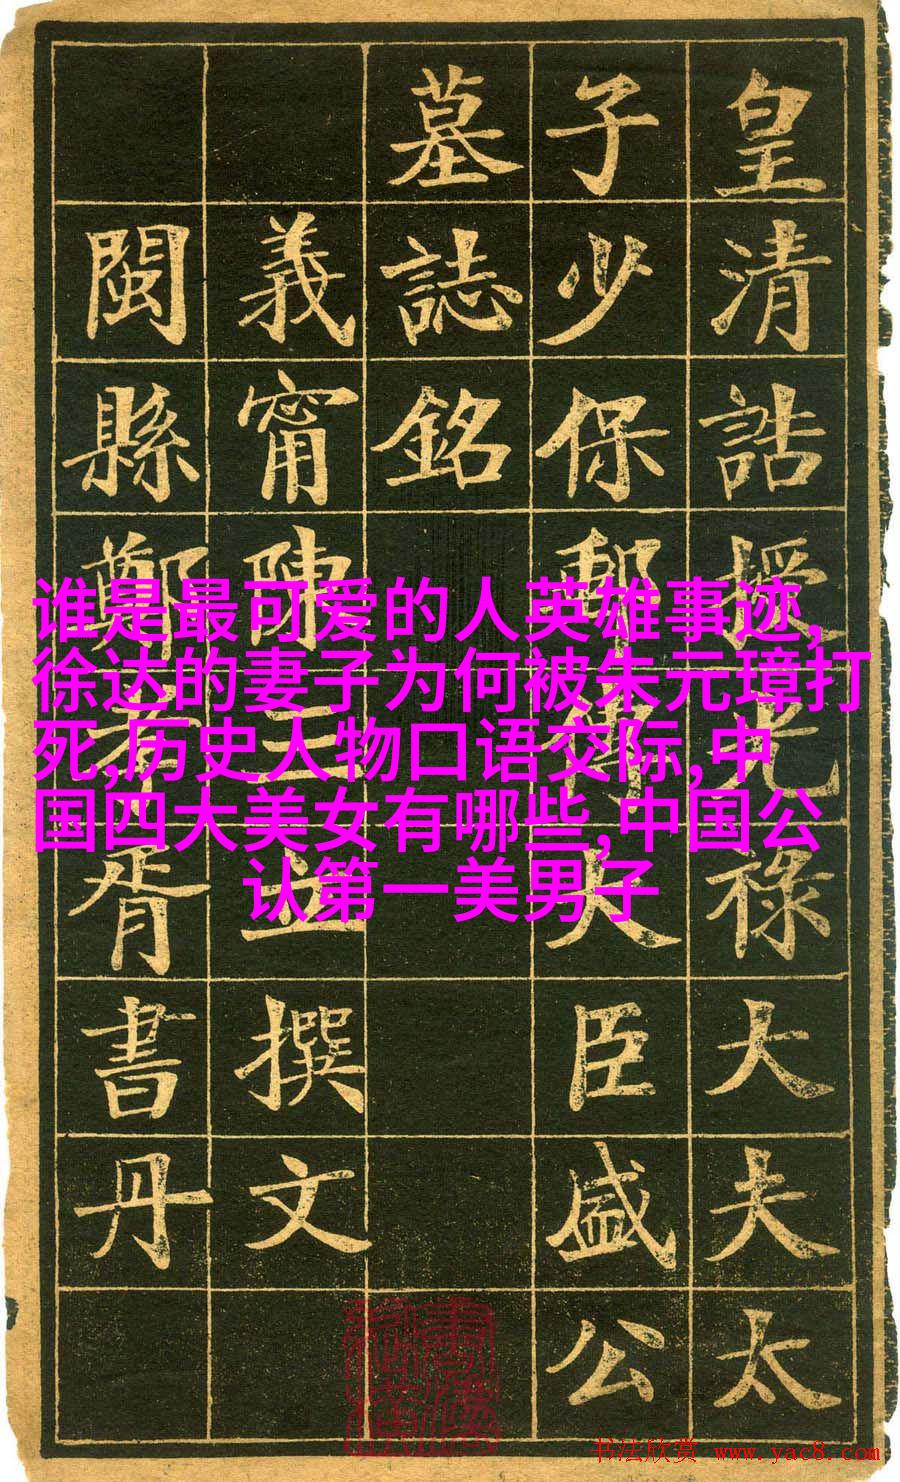 皇清誥授光祿大夫太
子少保郵傳大臣盛公
墓誌銘
義甯陳三立撰文
閩縣鄭孝胥書丹
谁是最可爱的人英雄事迹,
徐达的妻子为何被朱元璋打
死,历史人物口语交际,中
国四大美女有哪些,中国公
认第一美男子
书法欣赏 www.yac8.com